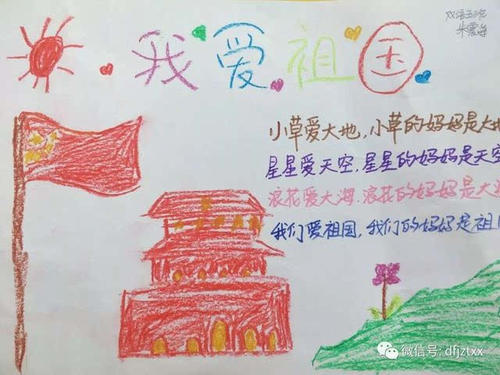 我爱祖国
小草爱大地,小草的妈妈是大地
星星爱天空,星星的妈妈是天空
浪花爱大海.浪花的妈妈是大
我们爱祖国,我们的妈妈是祖
微信号: dfjztxx